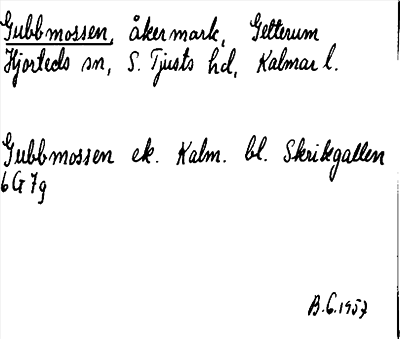 Gubbmossen, åkermark, Getterum
Hjorteds sn, S. Tjusts hd, Kalmar l.
Gubbmossen ek. Kalm. bl. Skrikegallen
6G7g
B.G.1957